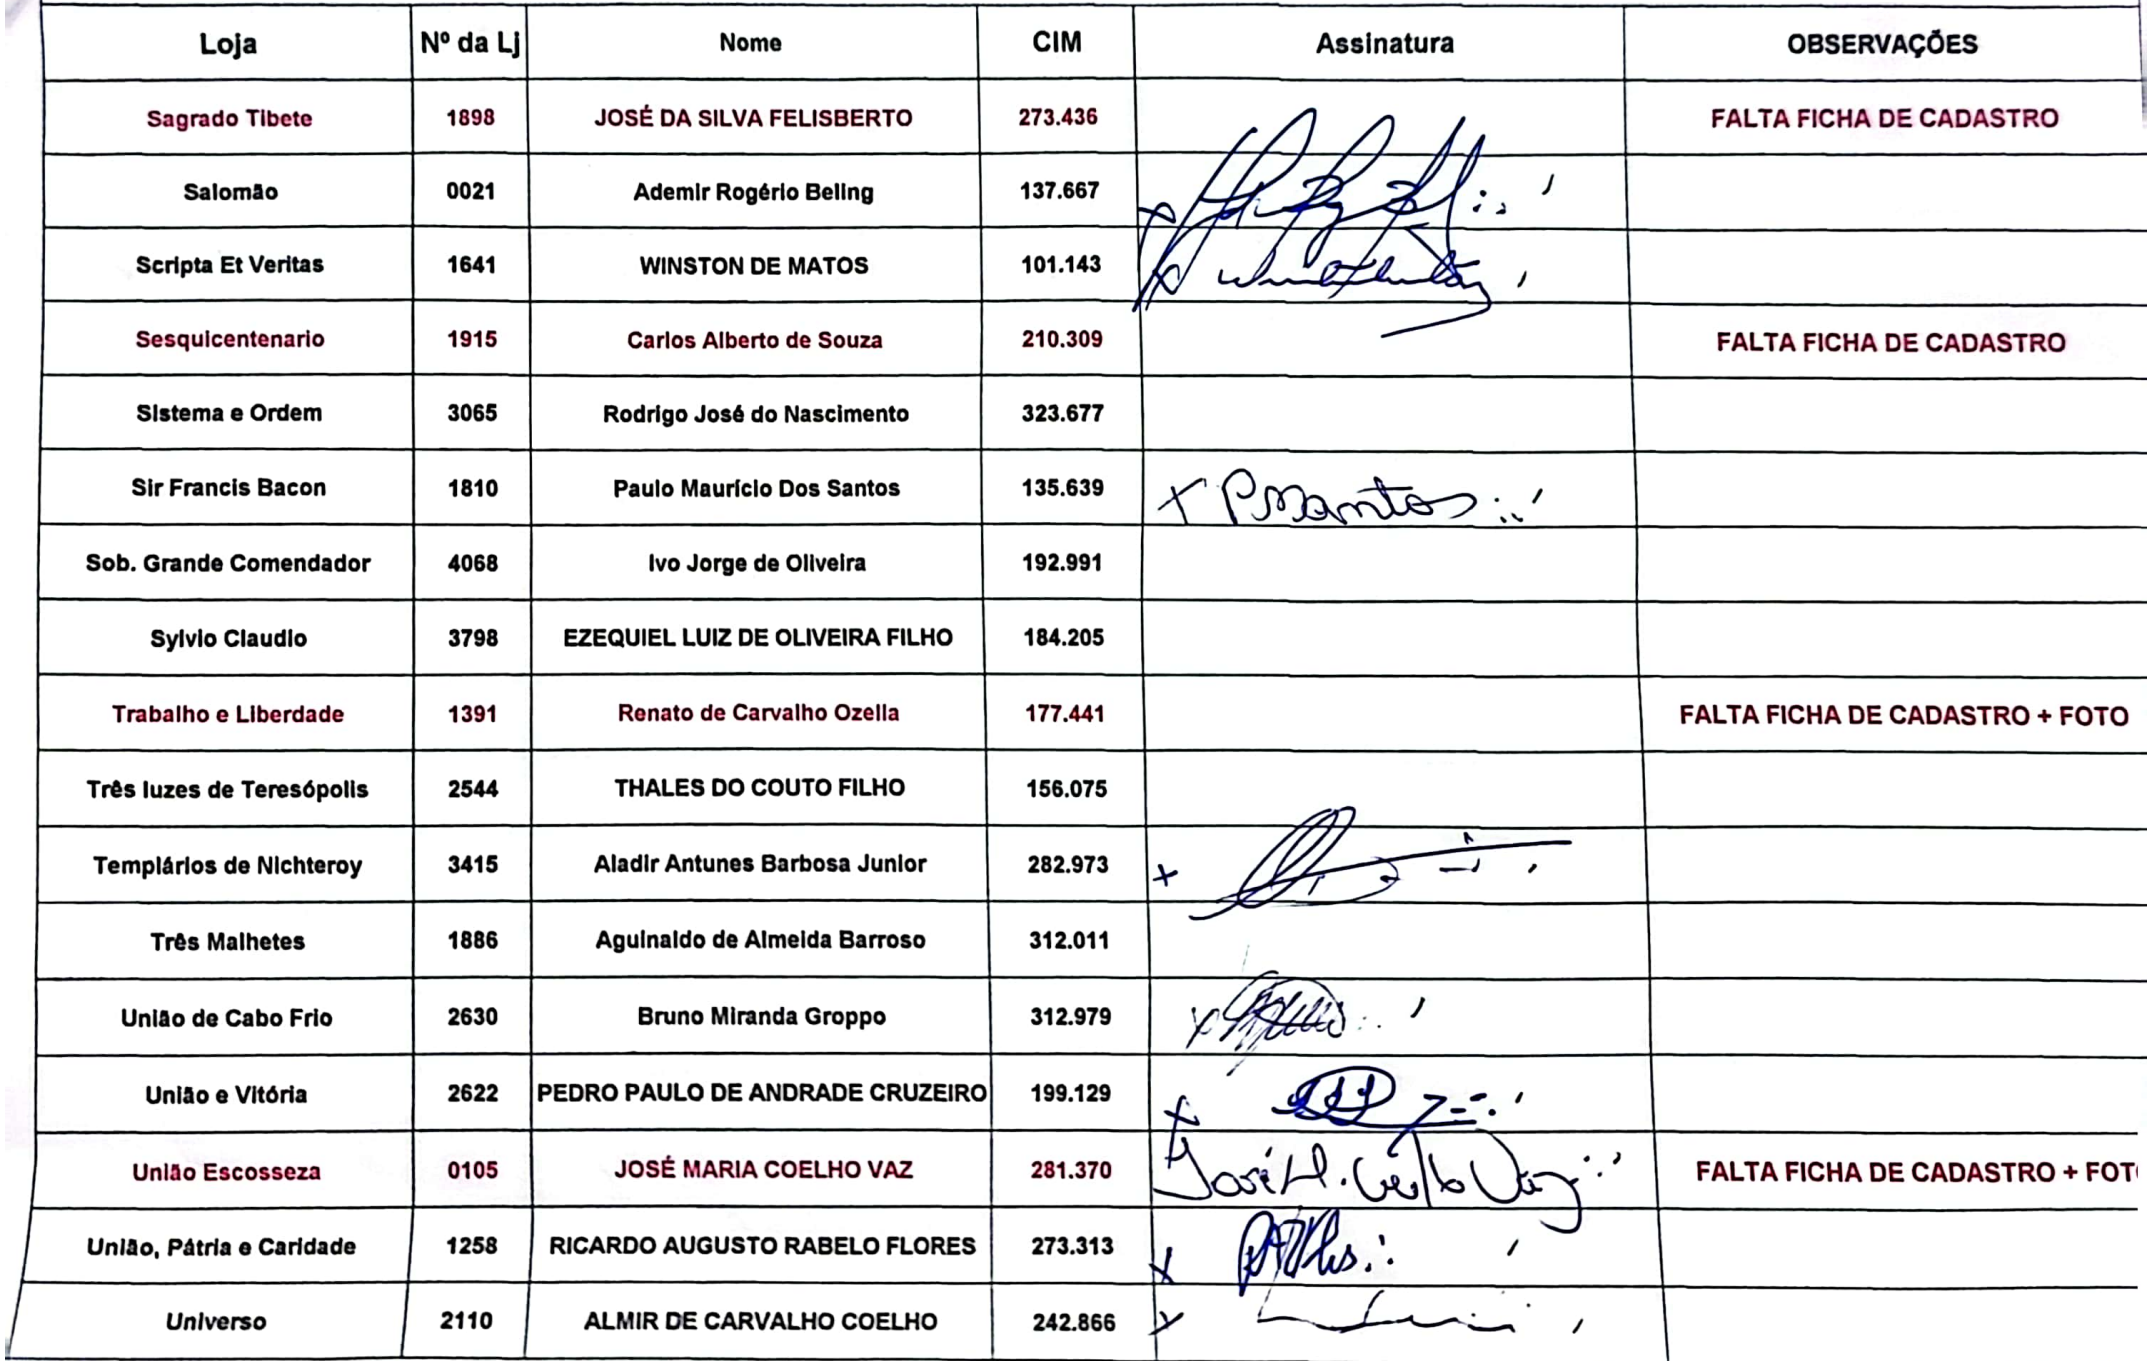 Loja Nº da Lj Nome CIM Assinatura OBSERVAÇÕES
Sagrado Tibete 1898 JOSÉ DA SILVA FELISBERTO 273.436 FALTA FICHA DE CADASTRO
Salomão 0021 Ademir Rogério Beling 137.667
Scripta Et Veritas 1641 WINSTON DE MATOS 101.143
Sesquicentenario 1915 Carlos Alberto de Souza 210.309 FALTA FICHA DE CADASTRO
Sistema e Ordem 3065 Rodrigo José do Nascimento 323.677
Sir Francis Bacon 1810 Paulo Maurício Dos Santos 135.639 x PMSantos
Sob. Grande Comendador 4068 Ivo Jorge de Oliveira 192.991
Sylvio Claudio 3798 EZEQUIEL LUIZ DE OLIVEIRA FILHO 184.205
Trabalho e Liberdade 1391 Renato de Carvalho Ozella 177.441 FALTA FICHA DE CADASTRO + FOTO
Três luzes de Teresópolis 2544 THALES DO COUTO FILHO 156.075
Templários de Nichteroy 3415 Aladir Antunes Barbosa Junior 282.973 x
Três Malhetes 1886 Aguinaldo de Almeida Barroso 312.011
União de Cabo Frio 2630 Bruno Miranda Groppo 312.979 x
União e Vitória 2622 PEDRO PAULO DE ANDRADE CRUZEIRO 199.129 x
União Escosseza 0105 JOSÉ MARIA COELHO VAZ 281.370 José M. Coelho Vaz FALTA FICHA DE CADASTRO + FOT
União, Pátria e Caridade 1258 RICARDO AUGUSTO RABELO FLORES 273.313 x
Universo 2110 ALMIR DE CARVALHO COELHO 242.866 x